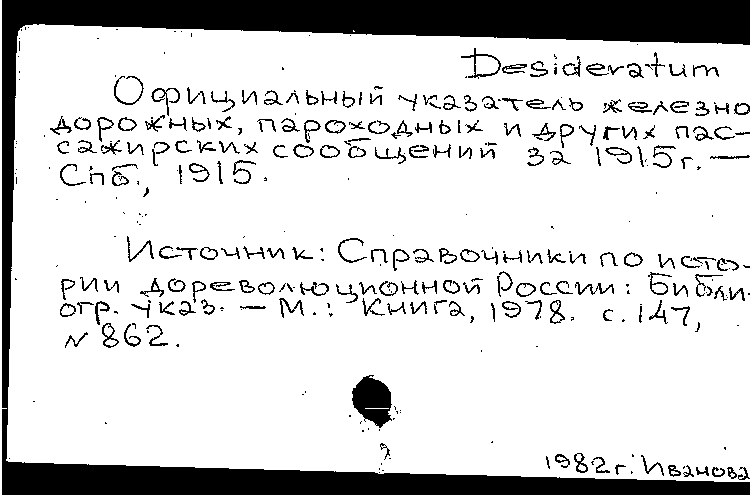 Desideratum
Официальный указатель железно
дорожных, пароходных и других пас-
сажирских сообщений за 1915г. —
Спб., 1915.
Источник: Справочники по исто-
рии дореволюционной России: Библи-
огр. указ. — М.: Книга, 1978. с. 147,
N 862.
1982г. Иванова